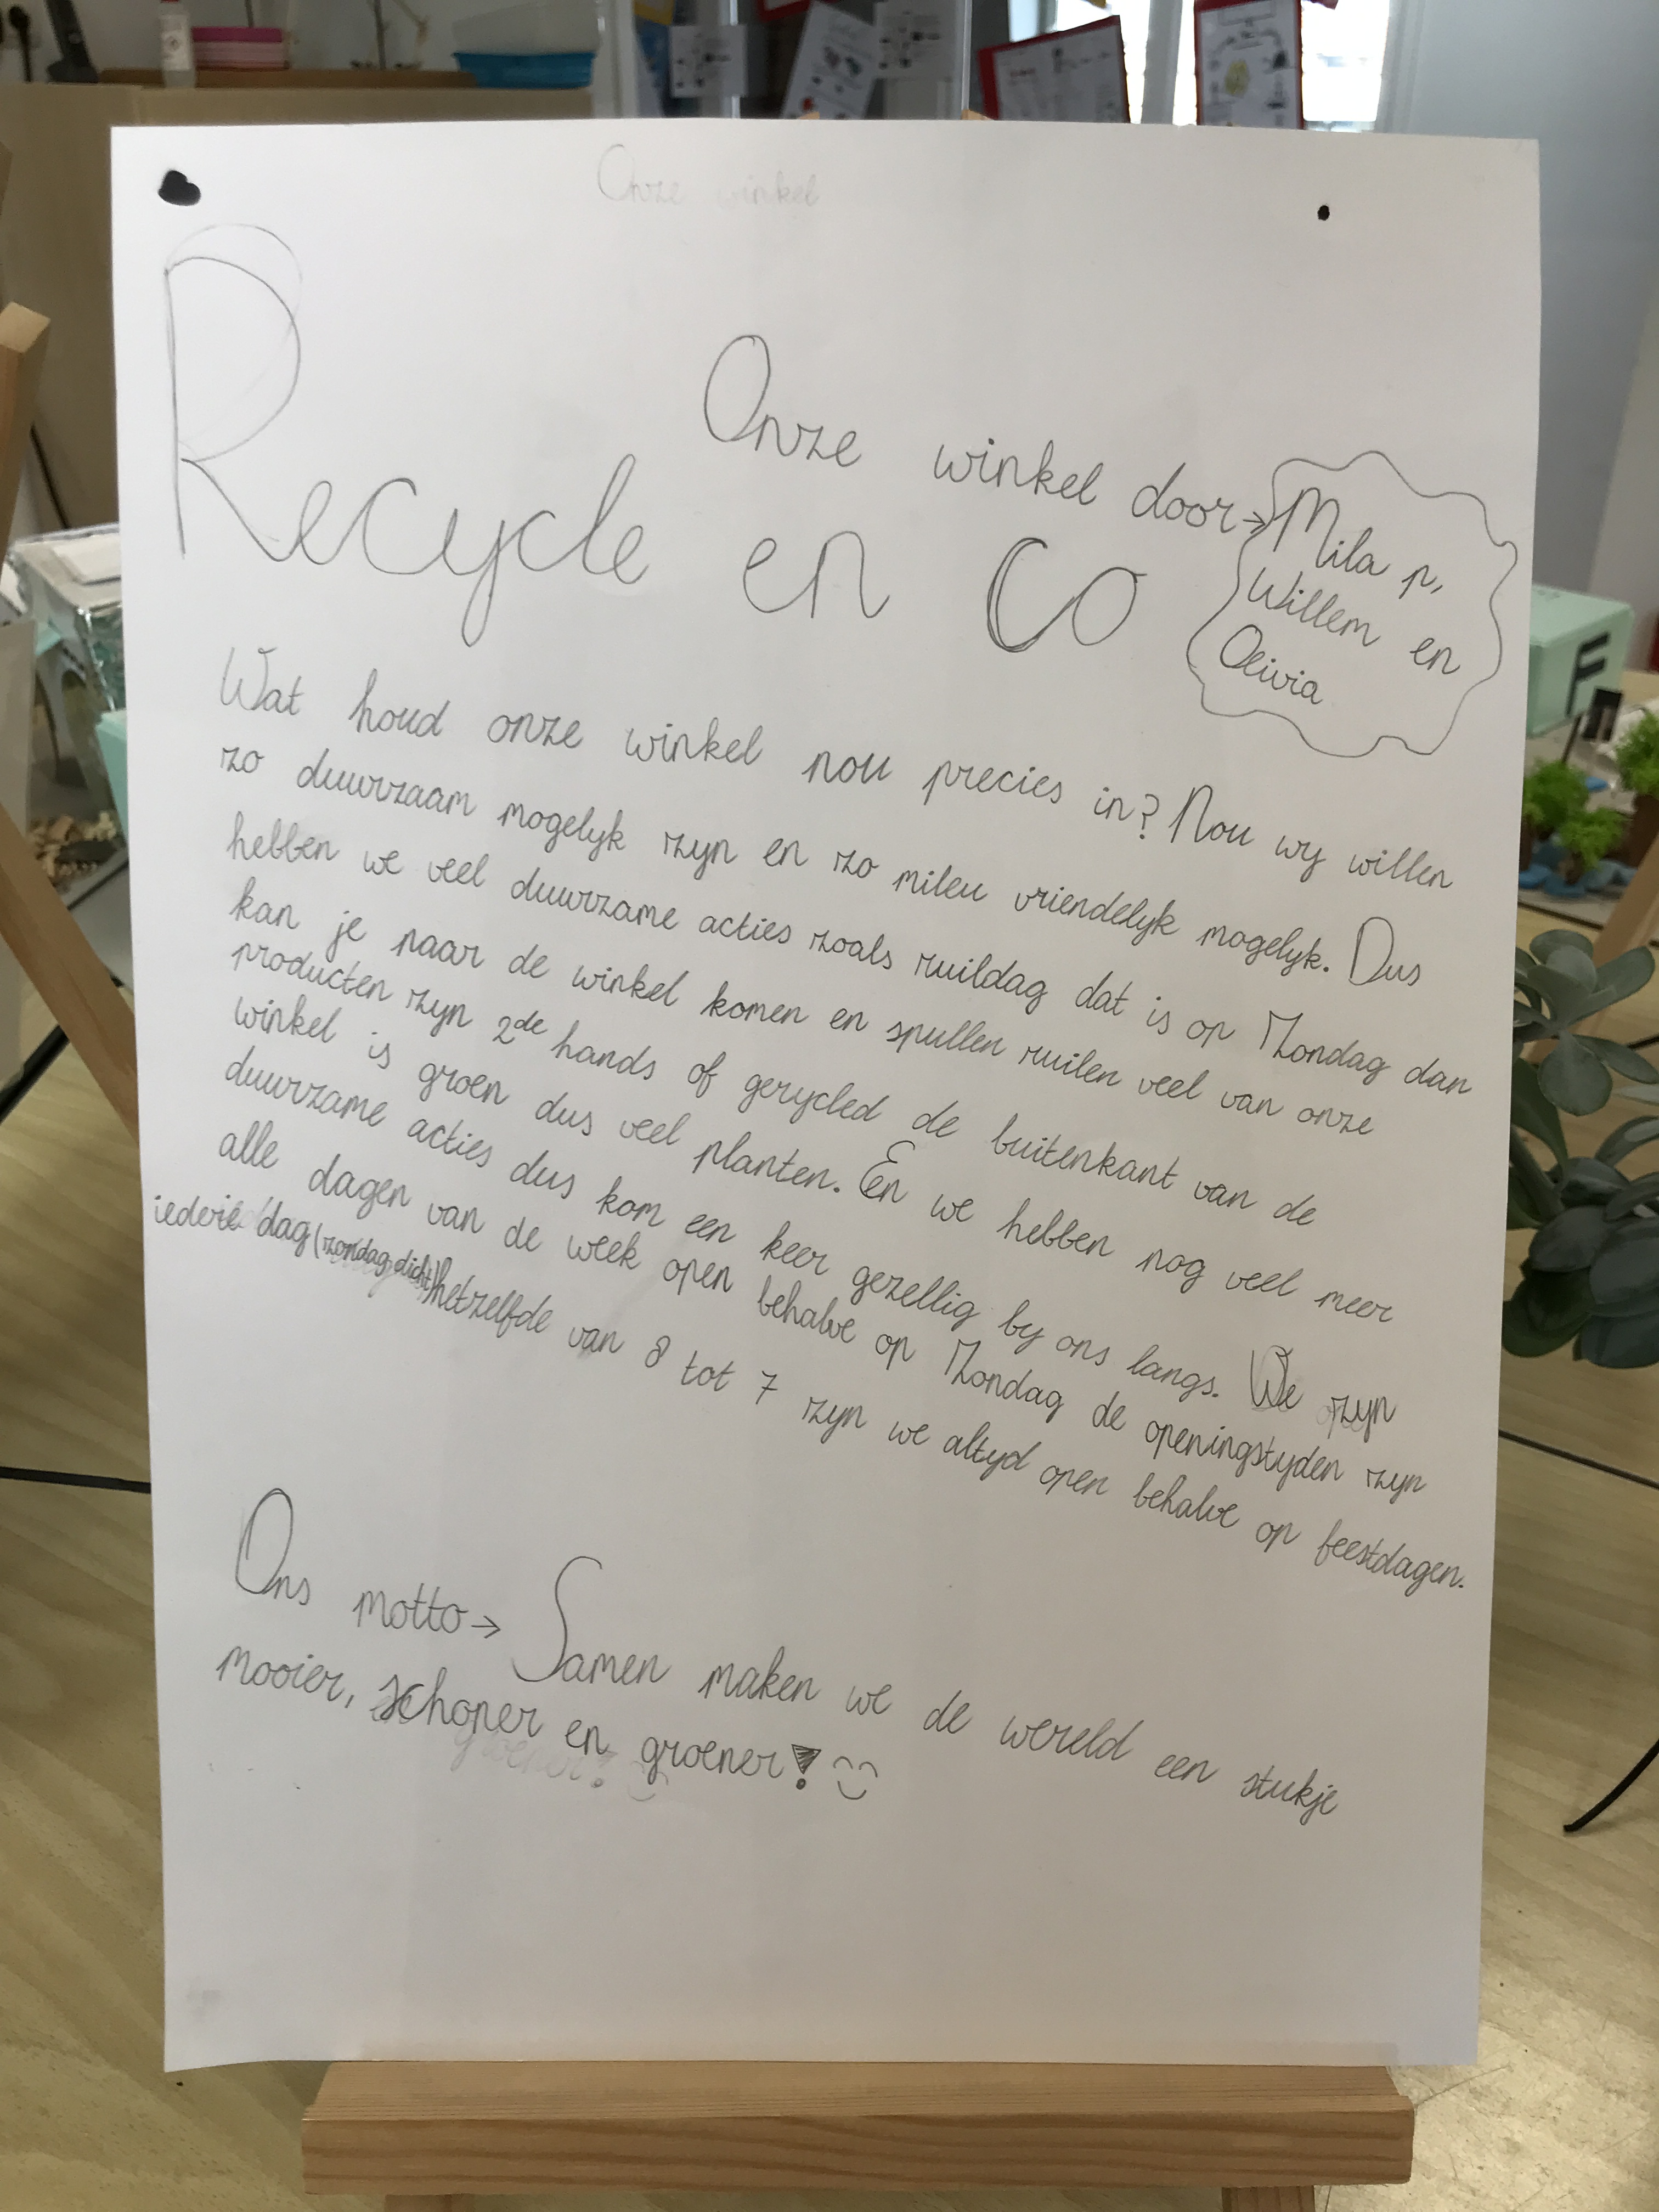 Onze winkel
Onze winkel door→ Mila p,
Willem en
Olivia
Recycle en Co
Wat houd onze winkel nou precies in? Nou wij willen
zo duurzaam mogelijk zijn en zo mileu vriendelijk mogelijk. Dus
hebben we veel duurzame acties zoals ruildag dat is op Zondag dan
kan je naar de winkel komen en spullen ruilen veel van onze
producten zijn 2de hands of gerycled de buitenkant van de
winkel is groen dus veel planten. En we hebben nog veel meer
duurzame acties dus kom een keer gezellig bij ons langs. We zijn
alle dagen van de week open behalve op Zondag de openingstijden zijn
iedere dag (zondag dicht) hetzelfde van 8 tot 7 zijn we altijd open behalve op feestdagen.
Ons motto→ Samen maken we de wereld een stukje
mooier, schoner en groener! 
F